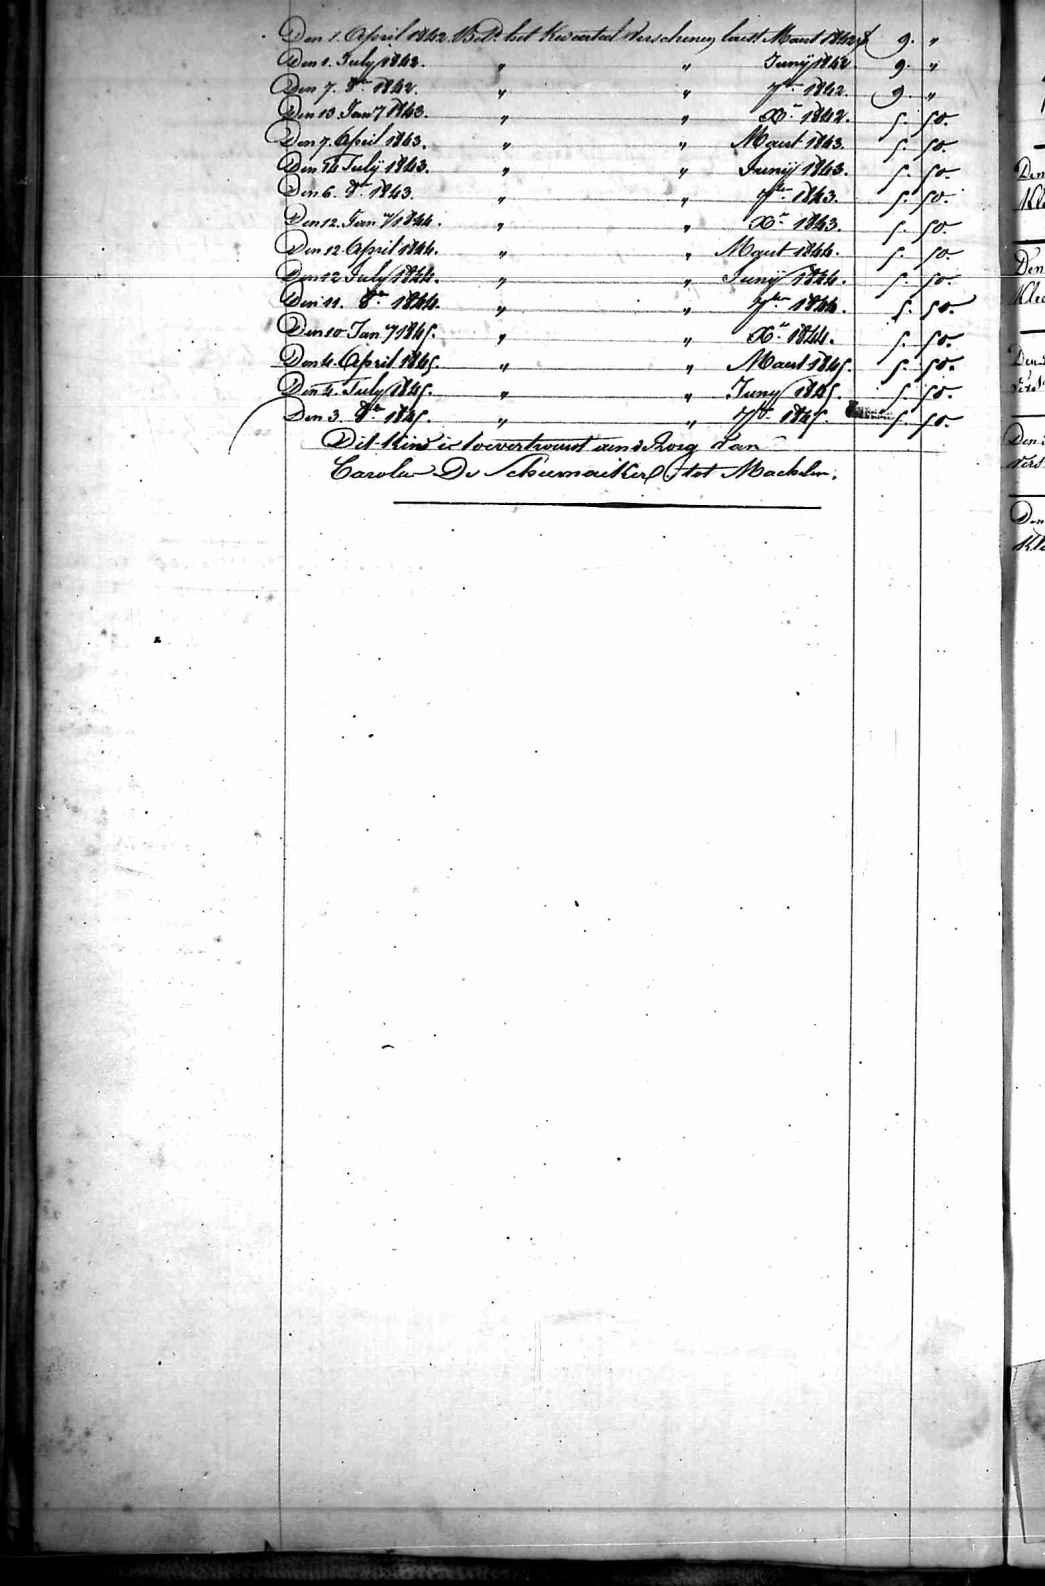 Den 1. April 1842. Bet.d het Kwartal Verschenen laest Maert 1842 f 9. "
Den 1. July 1842. " " Junij 1842. 9. "
Den 7. 8br 1842. " " 7br 1842 9. "
Den 13 Jany 1843. " " Xr 1842. 5. 50.
Den 7. April 1843. " " Maert 1843. 5. 50.
Den 14 Julij 1843. " " Junij 1843. 5. 50.
Den 6. 8br 1843. " " 7br 1843. 5. 50.
Den 12. Jany 1844. " " Xr 1843. 5. 50.
Den 12 April 1844. " " Maert 1844. 5. 50
Den 12 July 1844. " " Junij 1844. 5. 50.
Den 11. 8br 1844. " " 7br 1844. 5. 50.
Den 10 Jany 1845. " " Xr 1844. 5. 50.
Den 4. April 1845. " " Maert 1845. 5. 50.
Den 4. July 1845. " " Juny 1845. 5. 50.
Den 3. 8br 1845. " " 7br 1845. 5. 50.
Dit Kind is toevertrouwt aen de Zorg van
Carolus De Schuemaeker tot Machelen.
Den
Kle
Den
Kle
Den
Vers
Den
Vers
Den
Kle